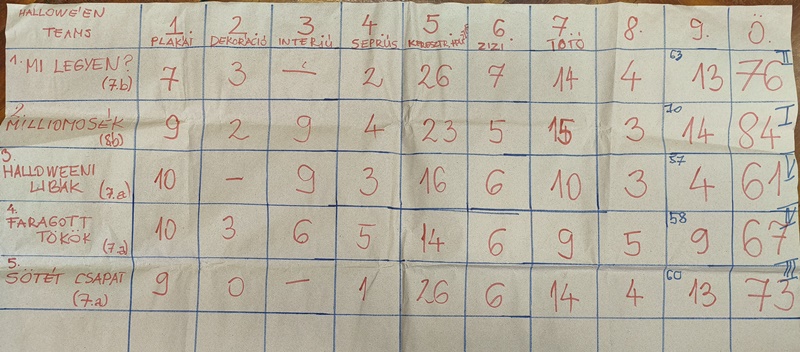 HALLOWE'EN TEAMS 1. PLAKÁT 2. DEKORÁCIÓ 3. INTERJÚ 4. SEPRŰS 5. 6. ZIZI. 7. TOTÓ 8. 9. Ö.
1. MI LEGYEN? (7.b) 7 3 — 2 26 7 14 4 63 13 76 II
2. MILLIOMOSÉK (8b) 9 2 9 4 23 5 15 3 70 14 84 I
3. HALLOWEENI LIBÁK (7.a) 10 - 9 3 16 6 10 3 57 4 61 V
4. FARAGOTT TÖKÖK (7.a) 10 3 6 5 14 6 9 5 58 9 67 IV
5. SÖTÉT CSAPAT (7.a) 9 0 — 1 26 6 14 4 60 13 73 III